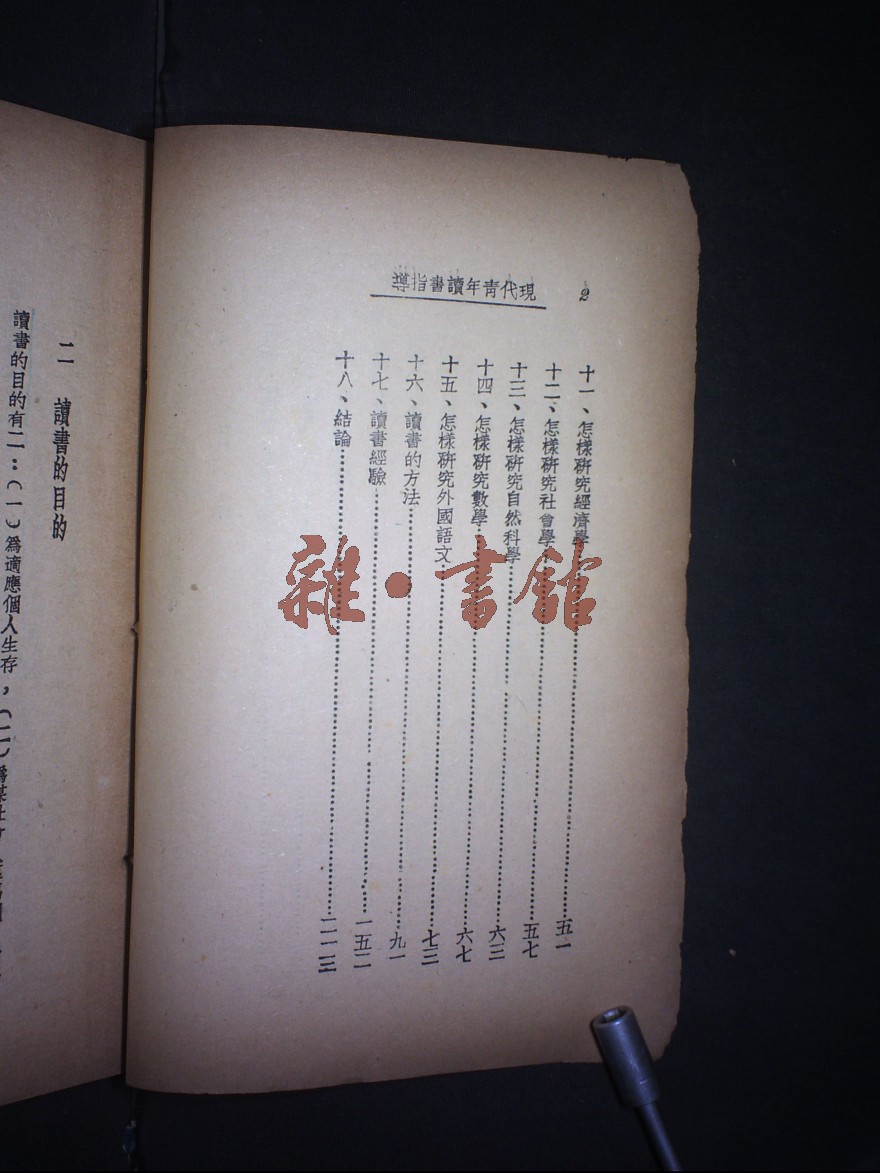 2
現代青年讀書指導
十一、怎樣硏究經濟學……五一
十二、怎樣硏究社會學……五七
十三、怎樣硏究自然科學……六三
十四、怎樣硏究數學……六七
十五、怎樣硏究外國語文……七三
十六、讀書的方法……九一
十七、讀書經驗……一五二
十八、結論……二一三
二 讀書的目的
讀書的目的有二：（一）爲適應個人生存，（二）
雜·書館